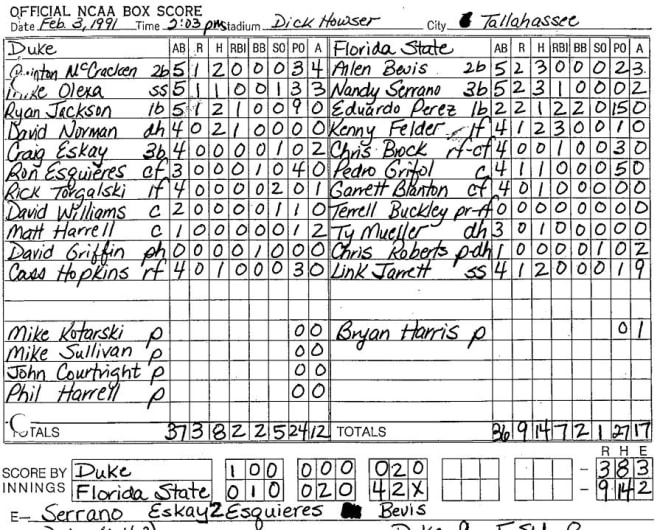 OFFICIAL NCAA BOX SCORE
Date Feb. 3, 1991 Time 2:03 pm Stadium Dick Howser City Tallahassee
Duke AB R H RBI BB SO PO A Florida State AB R H RBI BB SO PO A
Quinton McCracken 2b 5 1 2 0 0 0 3 4 Allen Bevis 2b 5 2 3 0 0 0 2 3
Mike Olexa ss 5 1 1 0 0 1 3 3 Nandy Serrano 3b 5 2 3 1 0 0 0 2
Ryan Jackson 1b 5 1 2 1 0 0 9 0 Eduardo Perez 1b 2 2 1 2 2 0 15 0
David Norman dh 4 0 2 1 0 0 0 0 Kenny Felder lf 4 1 2 3 0 0 1 0
Craig Eskay 3b 4 0 0 0 0 1 0 2 Chris Brock rf-cf 4 0 0 1 0 0 3 0
Ron Esquieres cf 3 0 0 0 1 0 4 0 Pedro Grifol c 4 1 1 0 0 0 5 0
Rick Torgalski lf 4 0 0 0 0 2 0 1 Garrett Blanton cf 4 0 1 0 0 0 0 0
David Williams c 2 0 0 0 0 1 1 0 Terrell Buckley pr-rf 0 0 0 0 0 0 0 0
Matt Harrell c 1 0 0 0 0 0 1 2 Ty Mueller dh 3 0 1 0 0 0 0 0
David Griffin ph 0 0 0 0 1 0 0 0 Chris Roberts p-dh 1 0 0 0 0 1 0 2
Cass Hopkins rf 4 0 1 0 0 0 3 0 Link Jarrett ss 4 1 2 0 0 0 1 9
Mike Kotarski p 0 0 Bryan Harris p 0 1
Mike Sullivan p 0 0
John Courtright p 0 0
Phil Harrell p 0 0
TOTALS 37 3 8 2 2 5 24 12 TOTALS 36 9 14 7 2 1 27 17
R H E
SCORE BY INNINGS Duke 1 0 0 0 0 0 0 2 0 - 3 8 3
Florida State 0 1 0 0 2 0 4 2 X - 9 14 2
E- Serrano Eskay 2 Esquieres Bevis